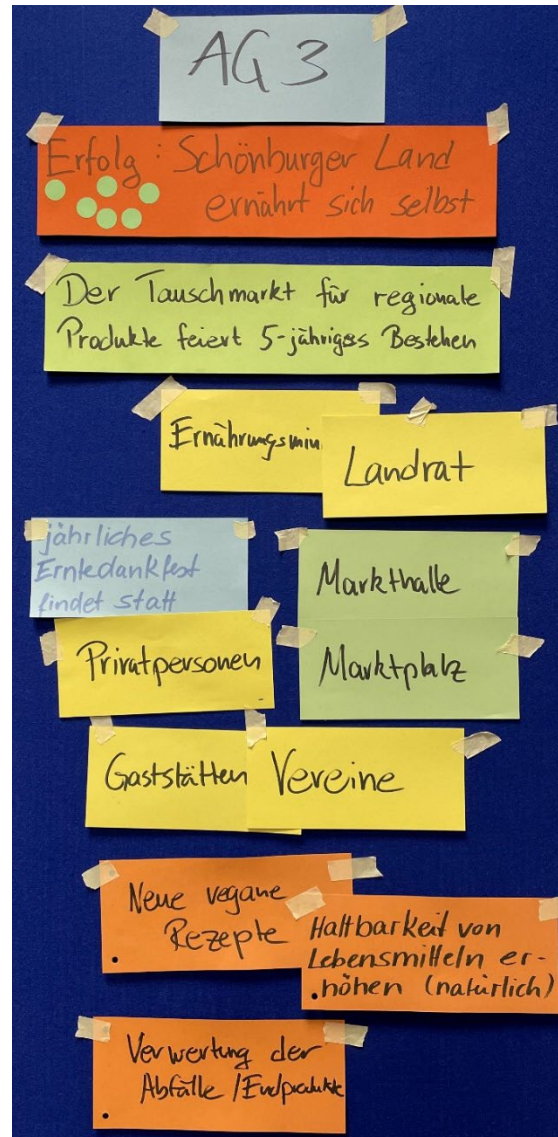 AG 3
Erfolg: Schönburger Land
ernährt sich selbst
Der Tauschmarkt für regionale
Produkte feiert 5-jähriges Bestehen
Ernährungsmin
Landrat
jährliches
Erntedankfest
findet statt
Markthalle
Privatpersonen
Marktplatz
Gaststätten
Vereine
Neue vegane
Rezepte
Haltbarkeit von
Lebensmitteln er-
höhen (natürlich)
Verwertung der
Abfälle / Endprodukte